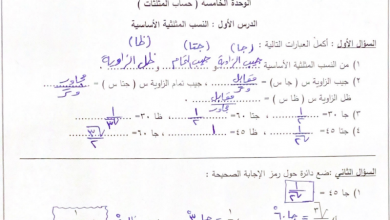 الوحدة الخامسة ( حساب المثلثات )
الدرس الأول : النسب المثلثية الأساسية
السؤال الأول : أكمل العبارات التالية :
(جا) (جتا) (ظا)
١) من النسب المثلثية الأساسية جيب الزاوية ، جيب التمام ، ظل الزاوية
٢) جيب الزاوية س ( جا س ) = مقابل / وتر جيب تمام الزاوية س = مجاور / وتر
ظل الزاوية س ( ظا س ) = مقابل / مجاور
٣) جا ٣٠ = ١/٢ جتا ٦٠ = ١/٢ ظا ٣٠ = ١/√٣
٤) جتا ٤٥ = ١/√٢ ظا ٤٥ = ١ جا ٦٠ = √٣/٢
السؤال الثاني : ضع دائرة حول رمز الإجابة الصحيحة :
١) جا ٤٥ = ١/√٢